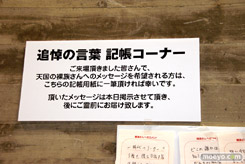 追悼の言葉 記帳コーナー
ご来場頂きました皆さんで、
天国の裸族さんへのメッセージを希望される方は、
こちらの記帳用紙に一筆頂ければ幸いです。
頂いたメッセージは本日掲示させて頂き、
後にご霊前にお届け致します。
moeyo.com